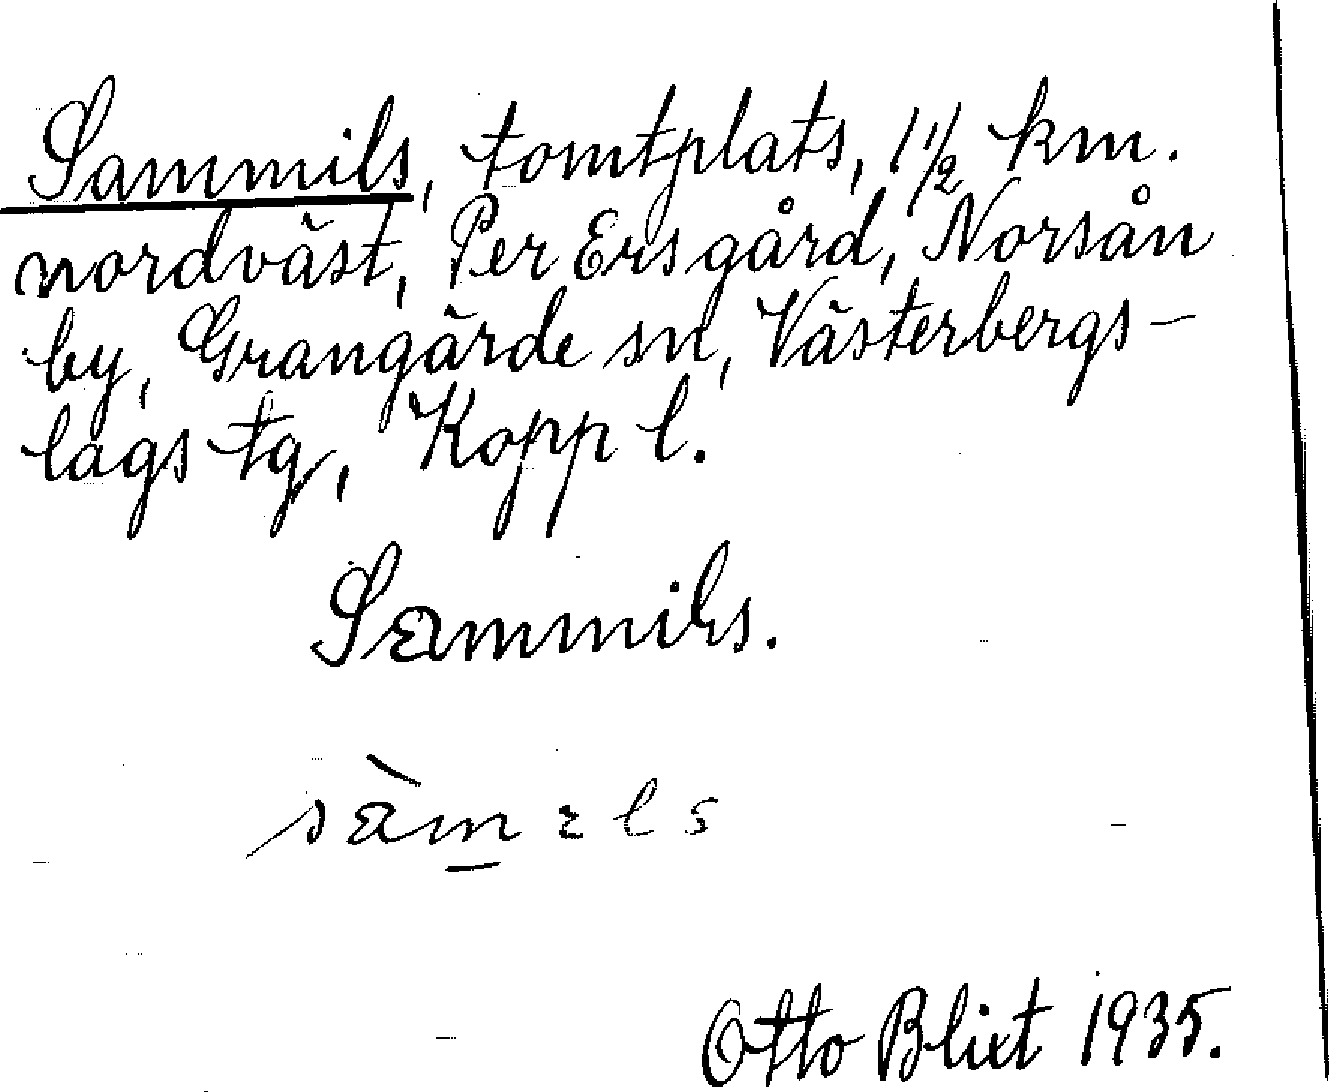 Sammils, tomtplats, 1 1/2 km.
nordväst, Per Ersgård, Norsån
by, Grangärde sn, Västerbergs-
lags tg, Kopp l.
Sammils.
Otto Blixt 1935.